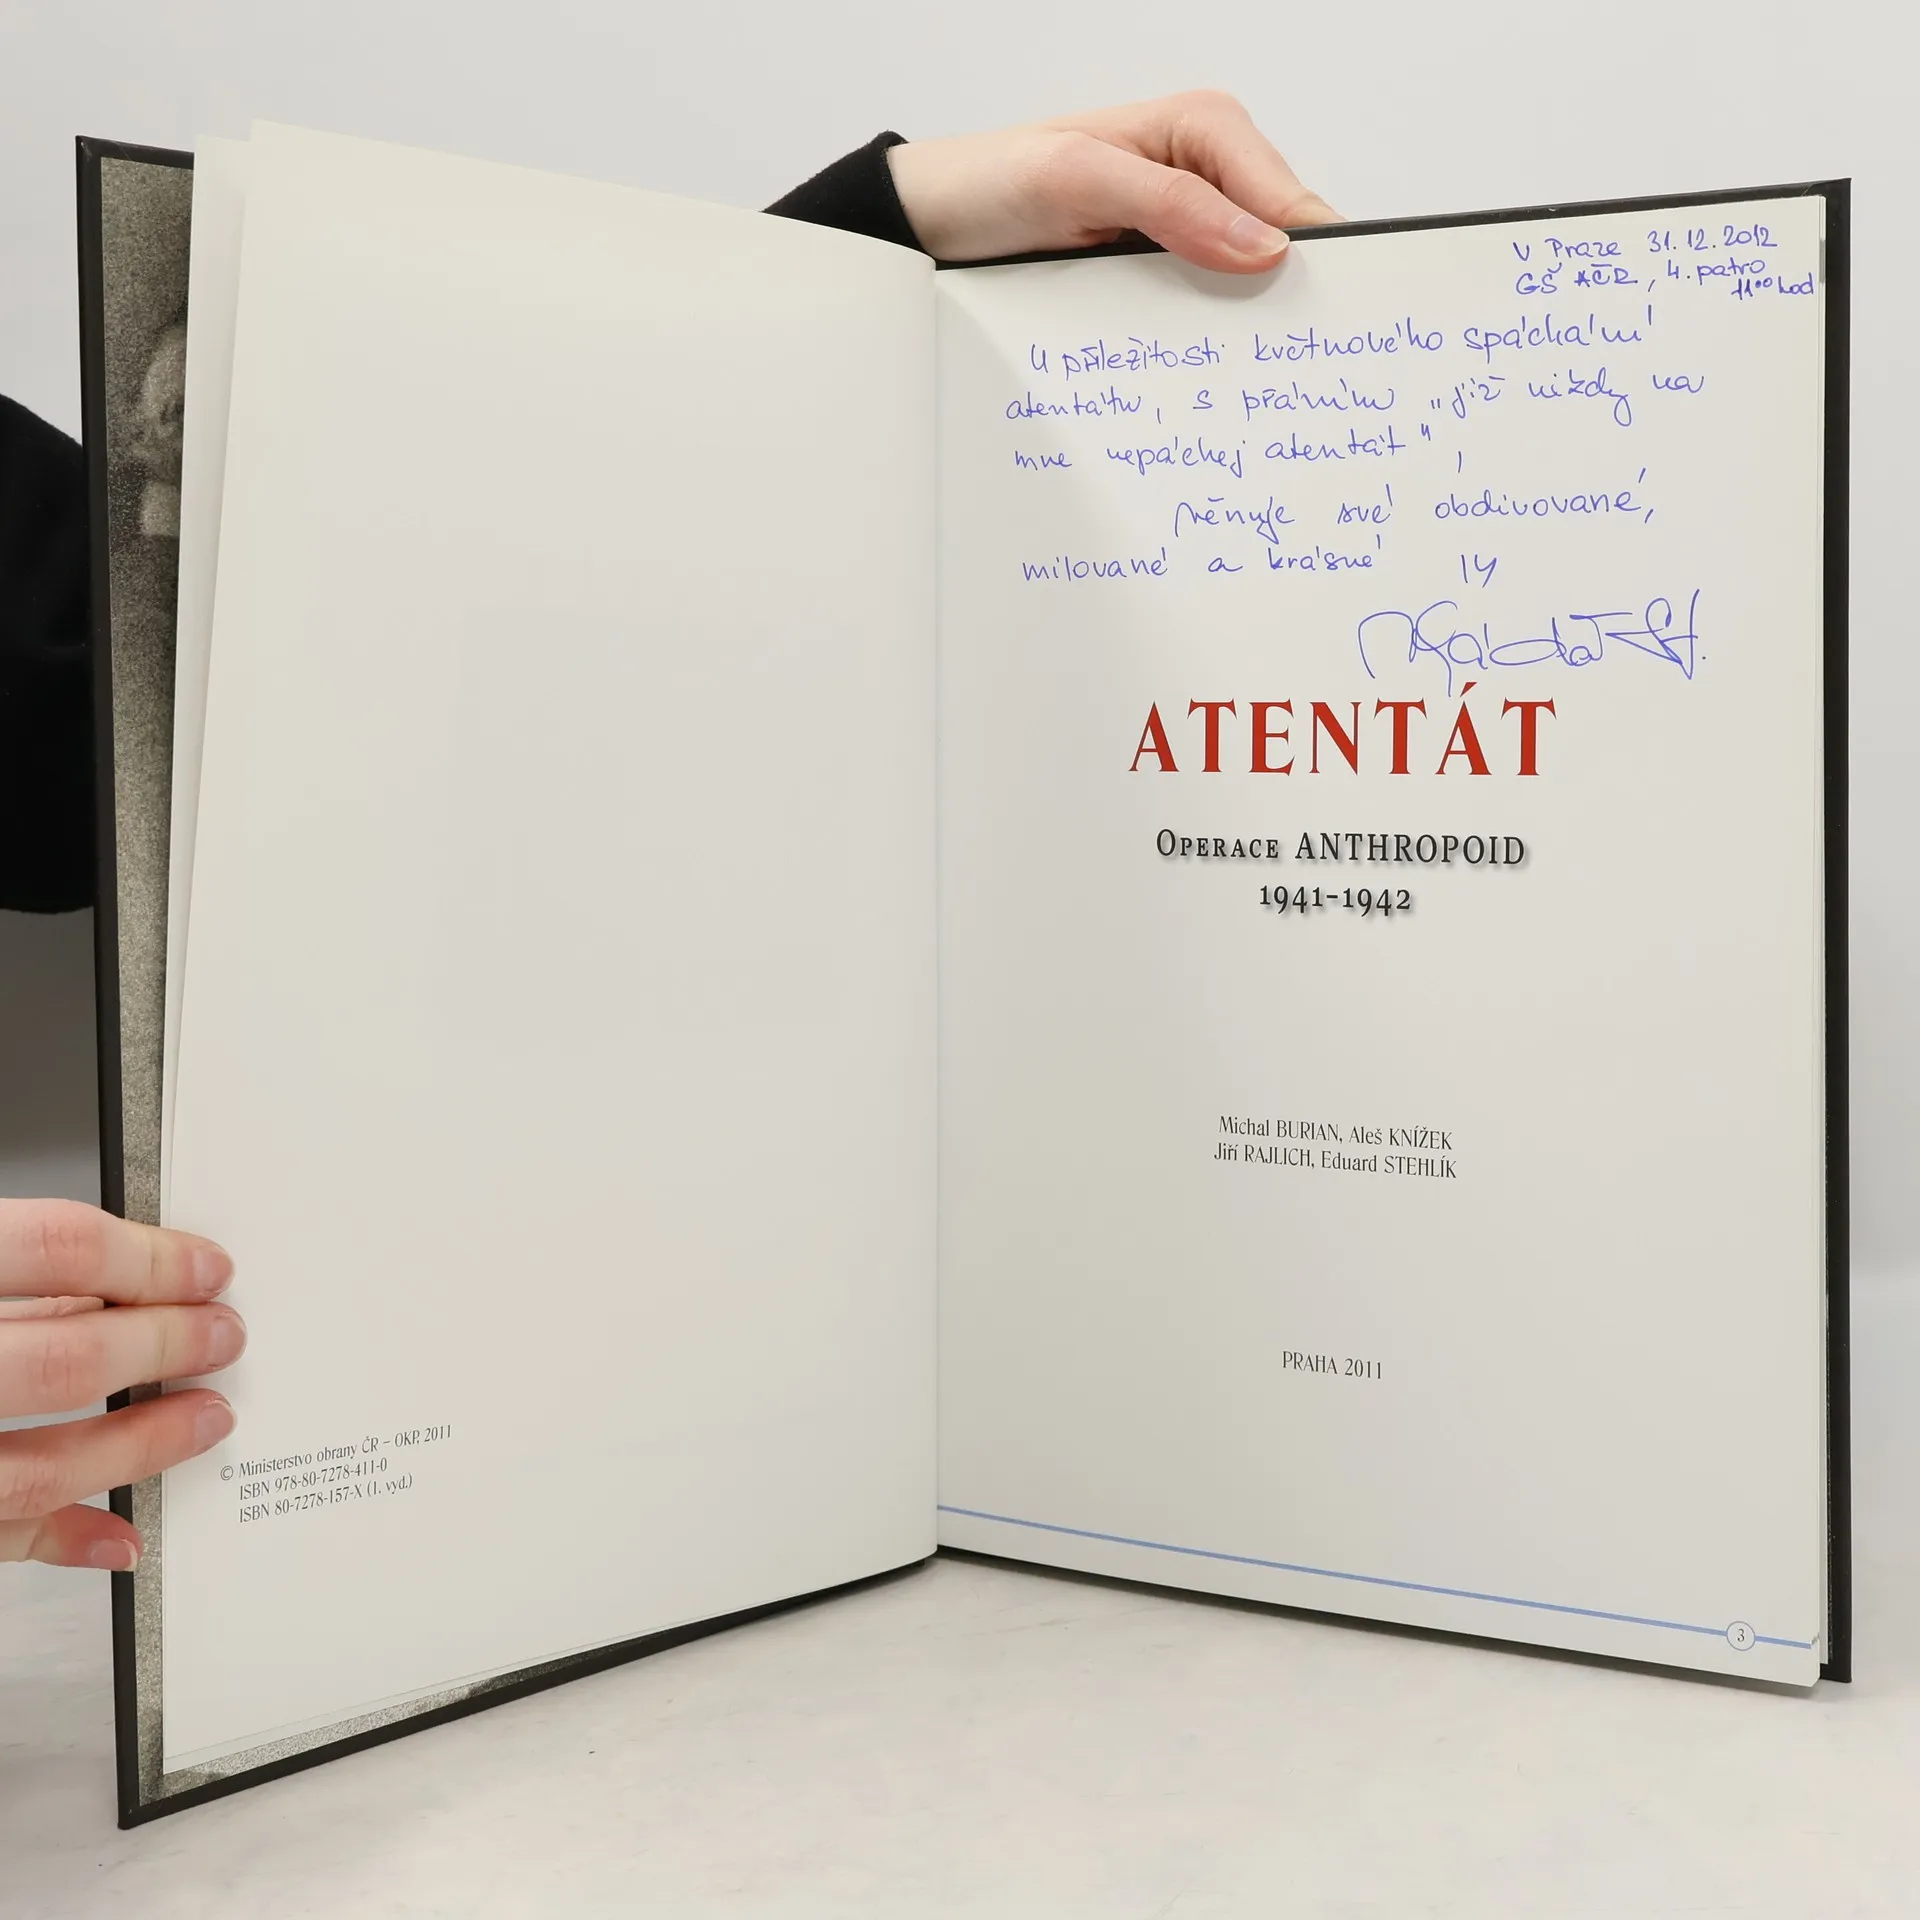 © Ministerstvo obrany ČR – OKP, 2011
ISBN 978-80-7278-411-0
ISBN 80-7278-157-X (1. vyd.)
V Praze 31.12.2012
GŠ AČR, 4. patro
11⁰⁰ hod
U příležitosti květnového spáchání
atentátu, s přáním „již nikdy na
mne nepáchej atentát",
věnuje své obdivované,
milované a krásné
ATENTÁT
Operace ANTHROPOID
1941-1942
Michal BURIAN, Aleš KNÍŽEK
Jiří RAJLICH, Eduard STEHLÍK
PRAHA 2011
3